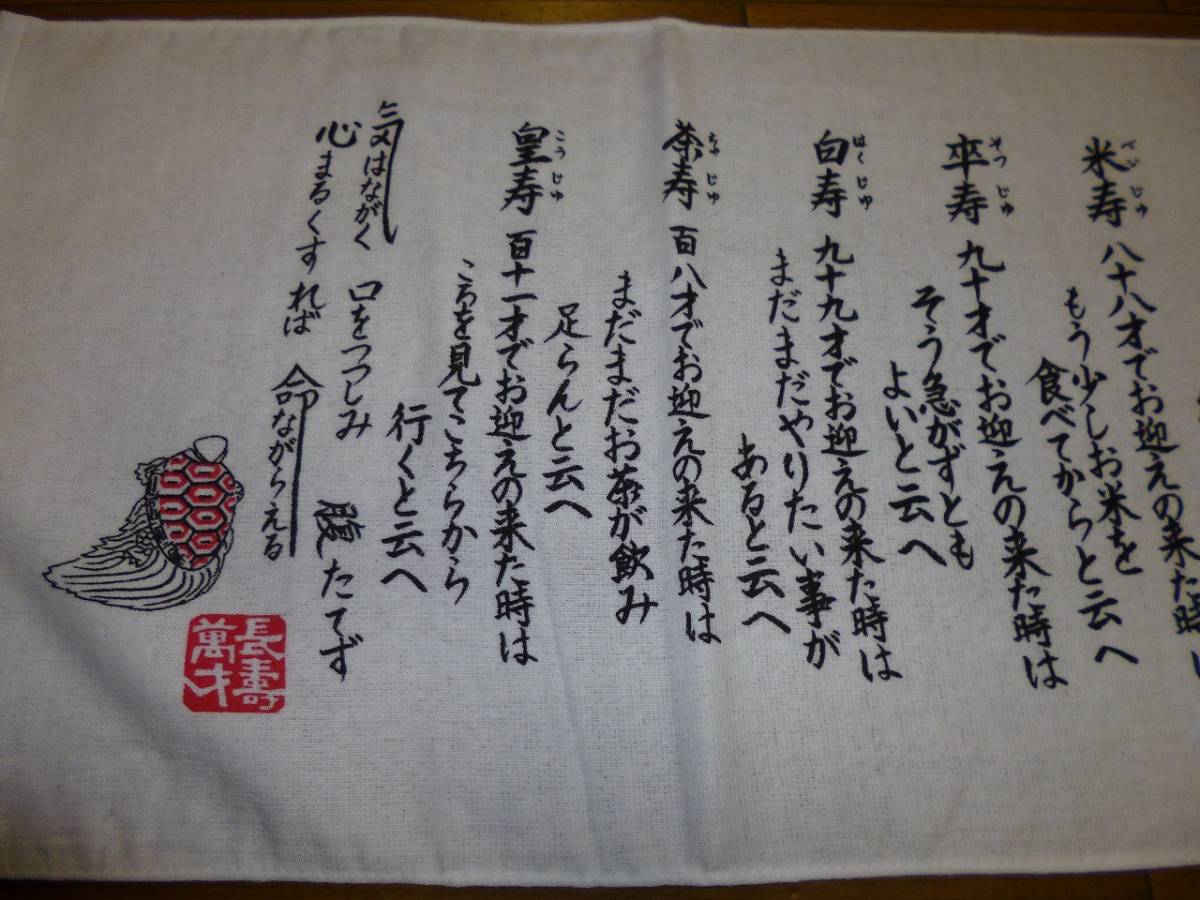 米寿 八十八才でお迎えの来た時は
べいじゅ
もう少しお米を
食べてからと云へ
卒寿 九十才でお迎えの来た時は
そつじゅ
そう急がずとも
よいと云へ
白寿 九十九才でお迎えの来た時は
はくじゅ
まだまだやりたい事が
あると云へ
茶寿 百八才でお迎えの来た時は
ちゃじゅ
まだまだお茶が飲み
足らんと云へ
皇寿 百十一才でお迎えの来た時は
こうじゅ
ころを見てこちらから
行くと云へ
気はながく 口をつつしみ 腹たてず
心まるくすれば 命ながらえる
長壽
萬才